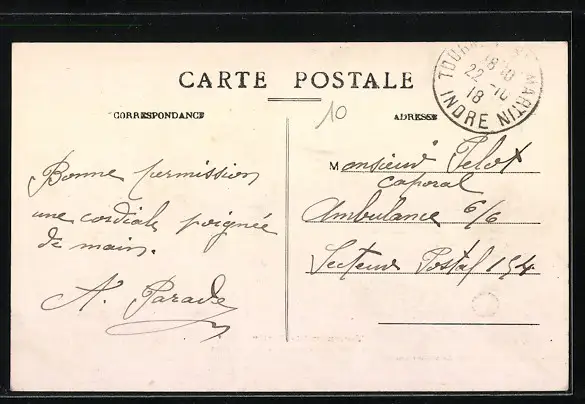 CARTE POSTALE
CORRESPONDANCE
ADRESSE
10
TOUR MARTIN
18 30
22 -10
18
INDRE
Bonne permission
une cordiale poignée
de main.
A. Parade
Monsieur Pelot
caporal
Ambulance 6/6
Secteur Postal 194